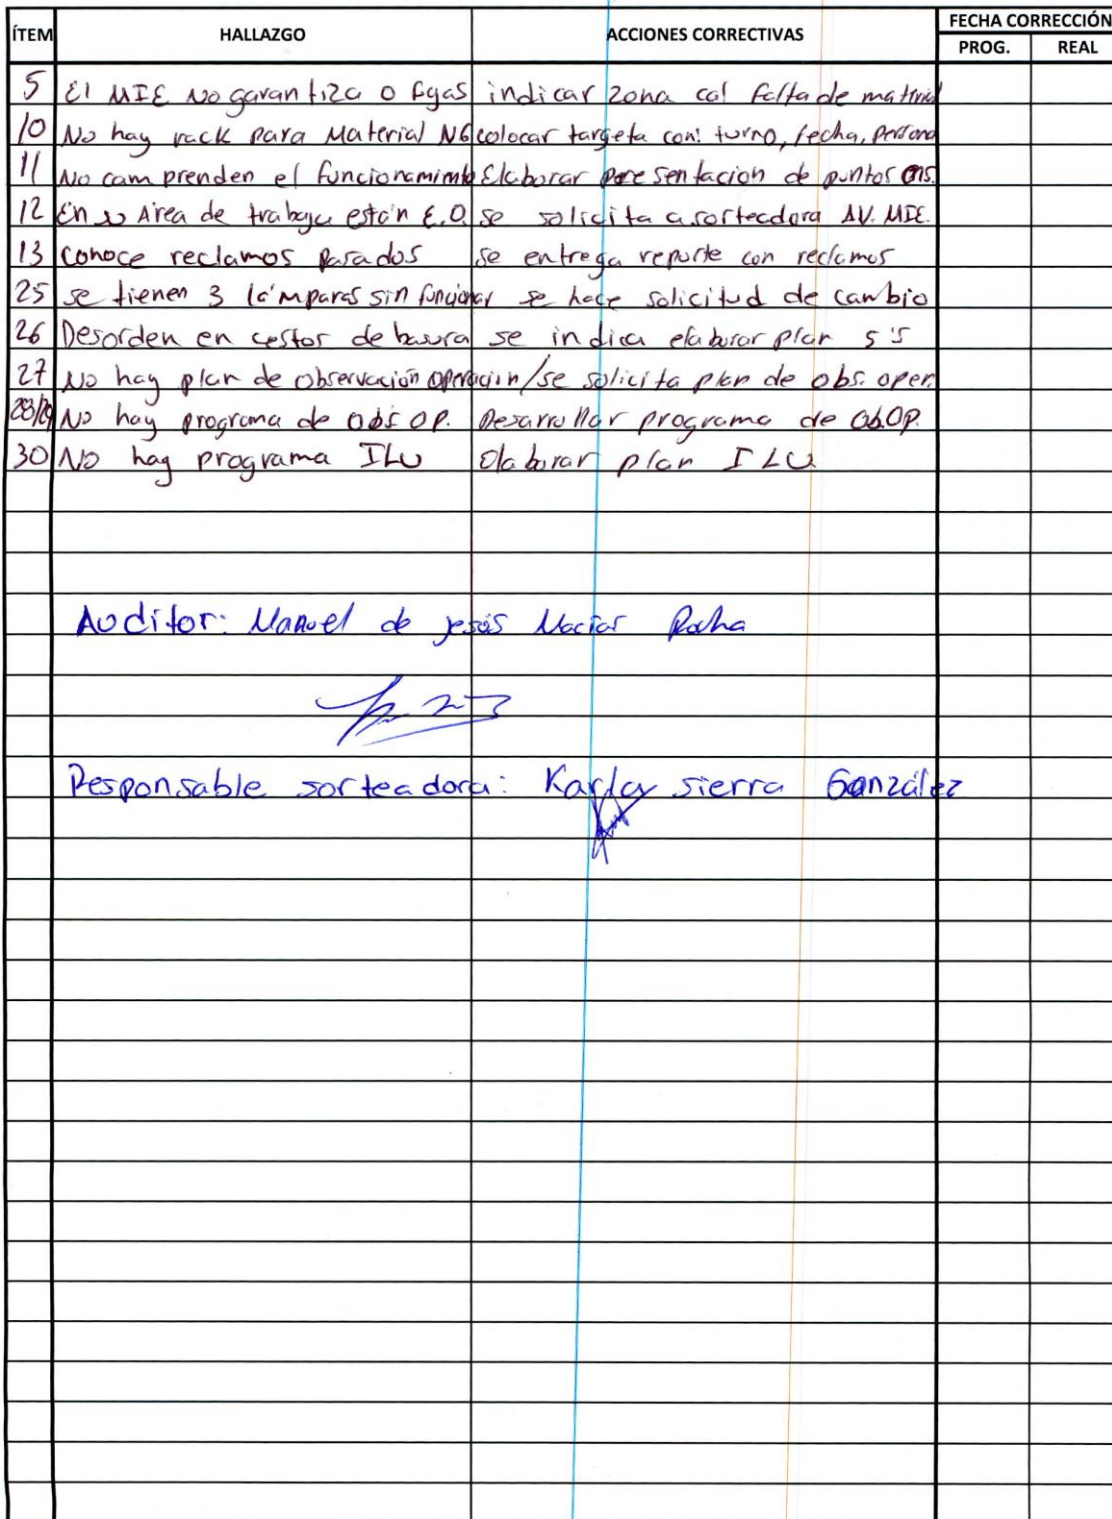 ÍTEM HALLAZGO ACCIONES CORRECTIVAS FECHA CORRECCIÓN
PROG. REAL
5 El MIE No garantiza 0 fgas indicar zona cal falta de material
10 No hay rack para Material NG colocar targeta con: turno, fecha, persona
11 No comprenden el funcionamiento Elaborar presentacion de puntos
12 En su Area de trabajo están E.O. se solicita a sorteadora AV. MIE.
13 conoce reclamos pasados se entrega reporte con reclamos
25 se tienen 3 lámparas sin funcionar se hace solicitud de cambio
26 Desorden en cestos de basura se indica elaborar plan 5's
27 No hay plan de observación operacion/se solicita plan de obs. oper.
28/29 No hay programa de obs OP. Desarrollar programa de Ob.OP.
30 No hay programa ILU Elaborar plan ILU
Auditor: Manuel de jesús Macias Rocha
Responsable sorteadora: Karla sierra González